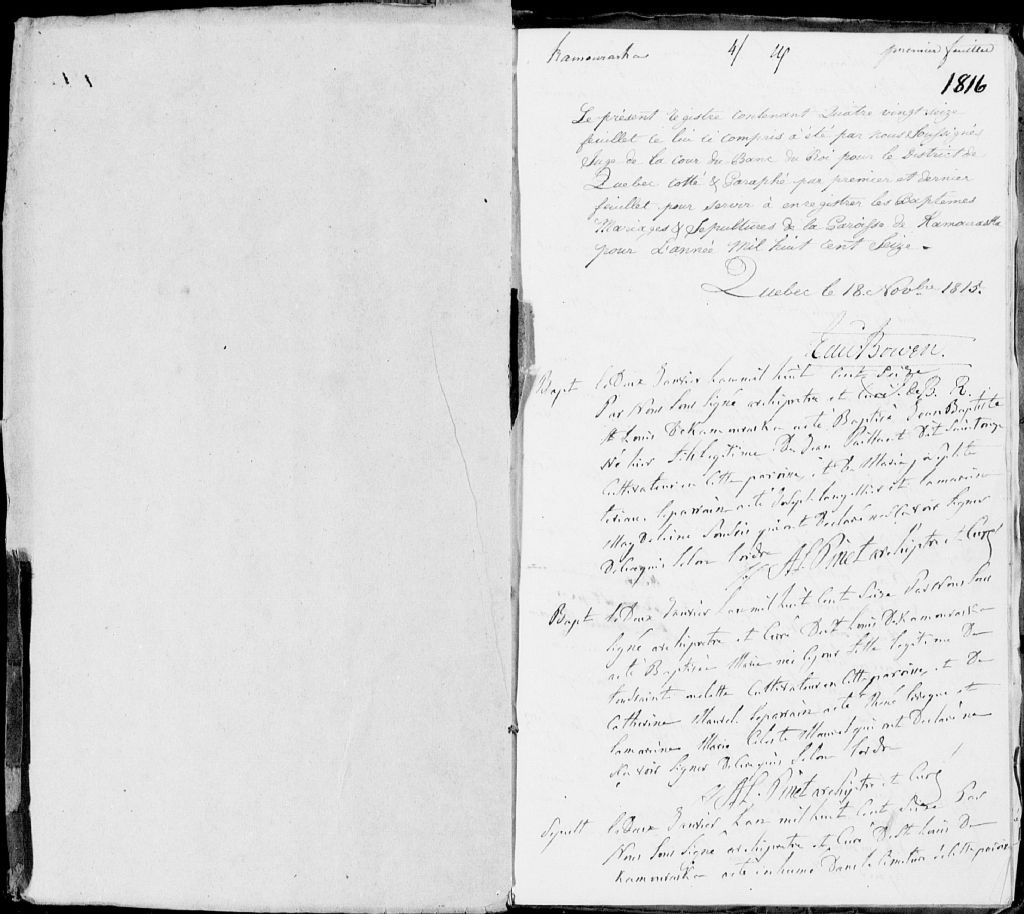 Kamouraska 4/ premier feuillet
1816
Le présent registre contenant Quatre vingt seize
feuillet ce lui ci compris a été par nous Soussignés
Juge de la cour du Banc du Roi pour le District de
Quebec cotté & Paraphé par premier et dernier
feuillet pour servir à enregistrer les Baptêmes
Mariages & Sepultures de la Paroisse de Kamouraska
pour L'année Mil huit Cent Seize.
Quebec le 18. Novbre 1815.
Edw Bowen.
Bapt le Deux Janvier L'an mil huit Cent Seize
Par Nous Sous Signé archipretre et Curé de
St Louis De Kamouraska a eté Baptisé Jean Baptiste
Né hier fils legitime De Jean Paillant Dit Saintonge
Cultivateur en Cette paroisse, et De Marie
le parrain a eté Joseph et la marine
Magdeleine qui ont Declaré ne Savoir Signer
De Ce requis Selon lordre
J. Al. Pinet archiprtre et Curé
Bapt le Deux Janvier L'an mil huit Cent Seize Par Nous Sous
Signé archipretre et Curé De St Louis De Kamouraska
a eté Baptisée Marie née Ce jour fille legitime De
Toussaint Cultivateur en Cette paroisse, et De
Catherine le parrain a eté René et
la marine Marie Celeste qui ont Declaré ne
Savoir Signer De Ce requis Selon lordre
J. Al. Pinet archiptre et Curé
Sepult le Deux Janvier L'an mil huit Cent Seize Par
Nous Sous Signé archipretre et Curé De St Louis De
Kamouraska a eté inhumé Dans le Cimetiere de Cette paroisse